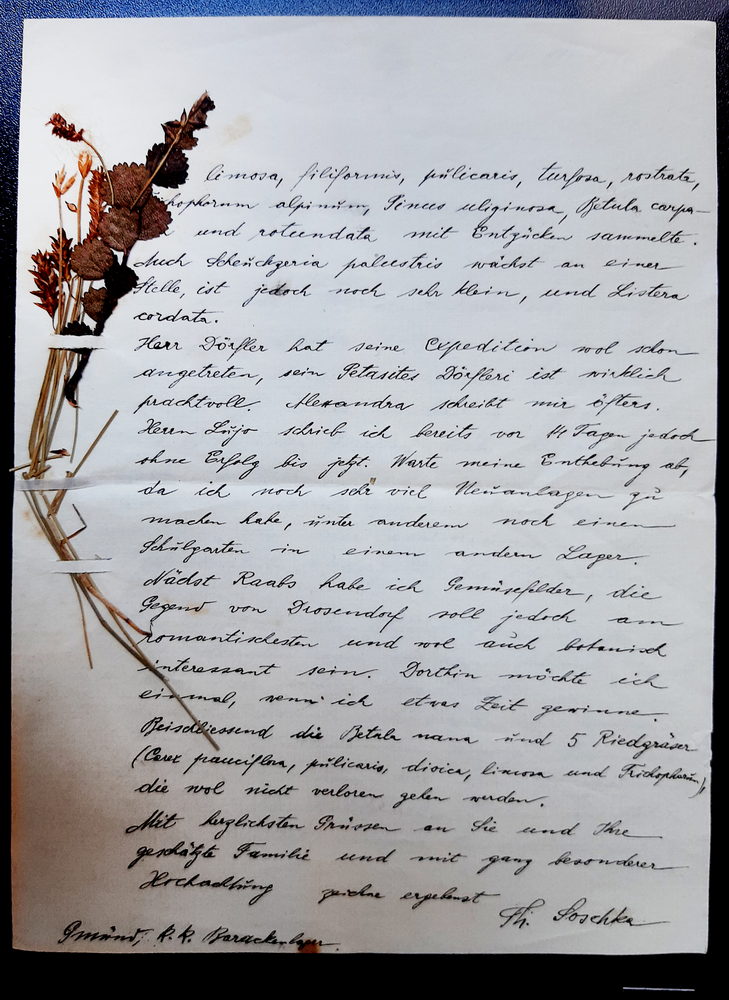 limosa, filiformis, pulicaris, turfosa, rostrata,
phophorum alpinum, Pinus uliginosa, Betula carpa-
und rotundata mit Entzücken sammelte.
Auch Scheuchzeria palustris wächst an einer
Stelle, ist jedoch noch sehr klein, und Listera
cordata.
Herr Dörfler hat seine Expedition wol schon
angetreten, sein Petasites Dörfleri ist wirklich
prachtvoll. Alexandra schreibt mir öfters.
Herrn Lujo schrieb ich bereits vor 14 Tagen jedoch
ohne Erfolg bis jetzt. Warte meine Enthebung ab,
da ich noch sehr viel Neuanlagen zu
machen habe, unter anderem noch einen
Schulgarten in einem andern Lager.
Nächst Raabs habe ich Gemüsefelder, die
Gegend von Drosendorf soll jedoch am
romantischesten und wol auch botanisch
interessant sein. Dorthin möchte ich
einmal, wenn ich etwas Zeit gewinne.
Beischliessend die Betula nana und 5 Riedgräser
(Carex pauciflora, pulicaris, dioica, limosa und Trichophorum),
die wol nicht verloren gehen werden.
Mit herzlichsten Grüssen an Sie und Ihre
geschätzte Familie und mit ganz besonderer
Hochachtung zeichne ergebenst
Th. Soschka
Gmünd, k. k. Barackenlager.